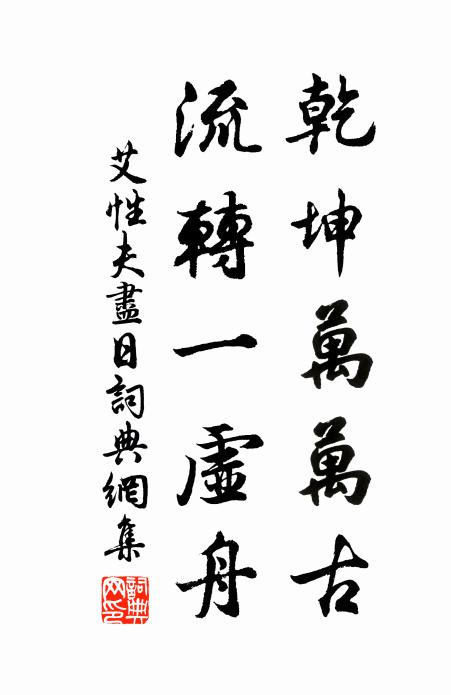 乾坤萬萬古
流轉一虛舟
艾性夫盡日詞典網集
詞典網印